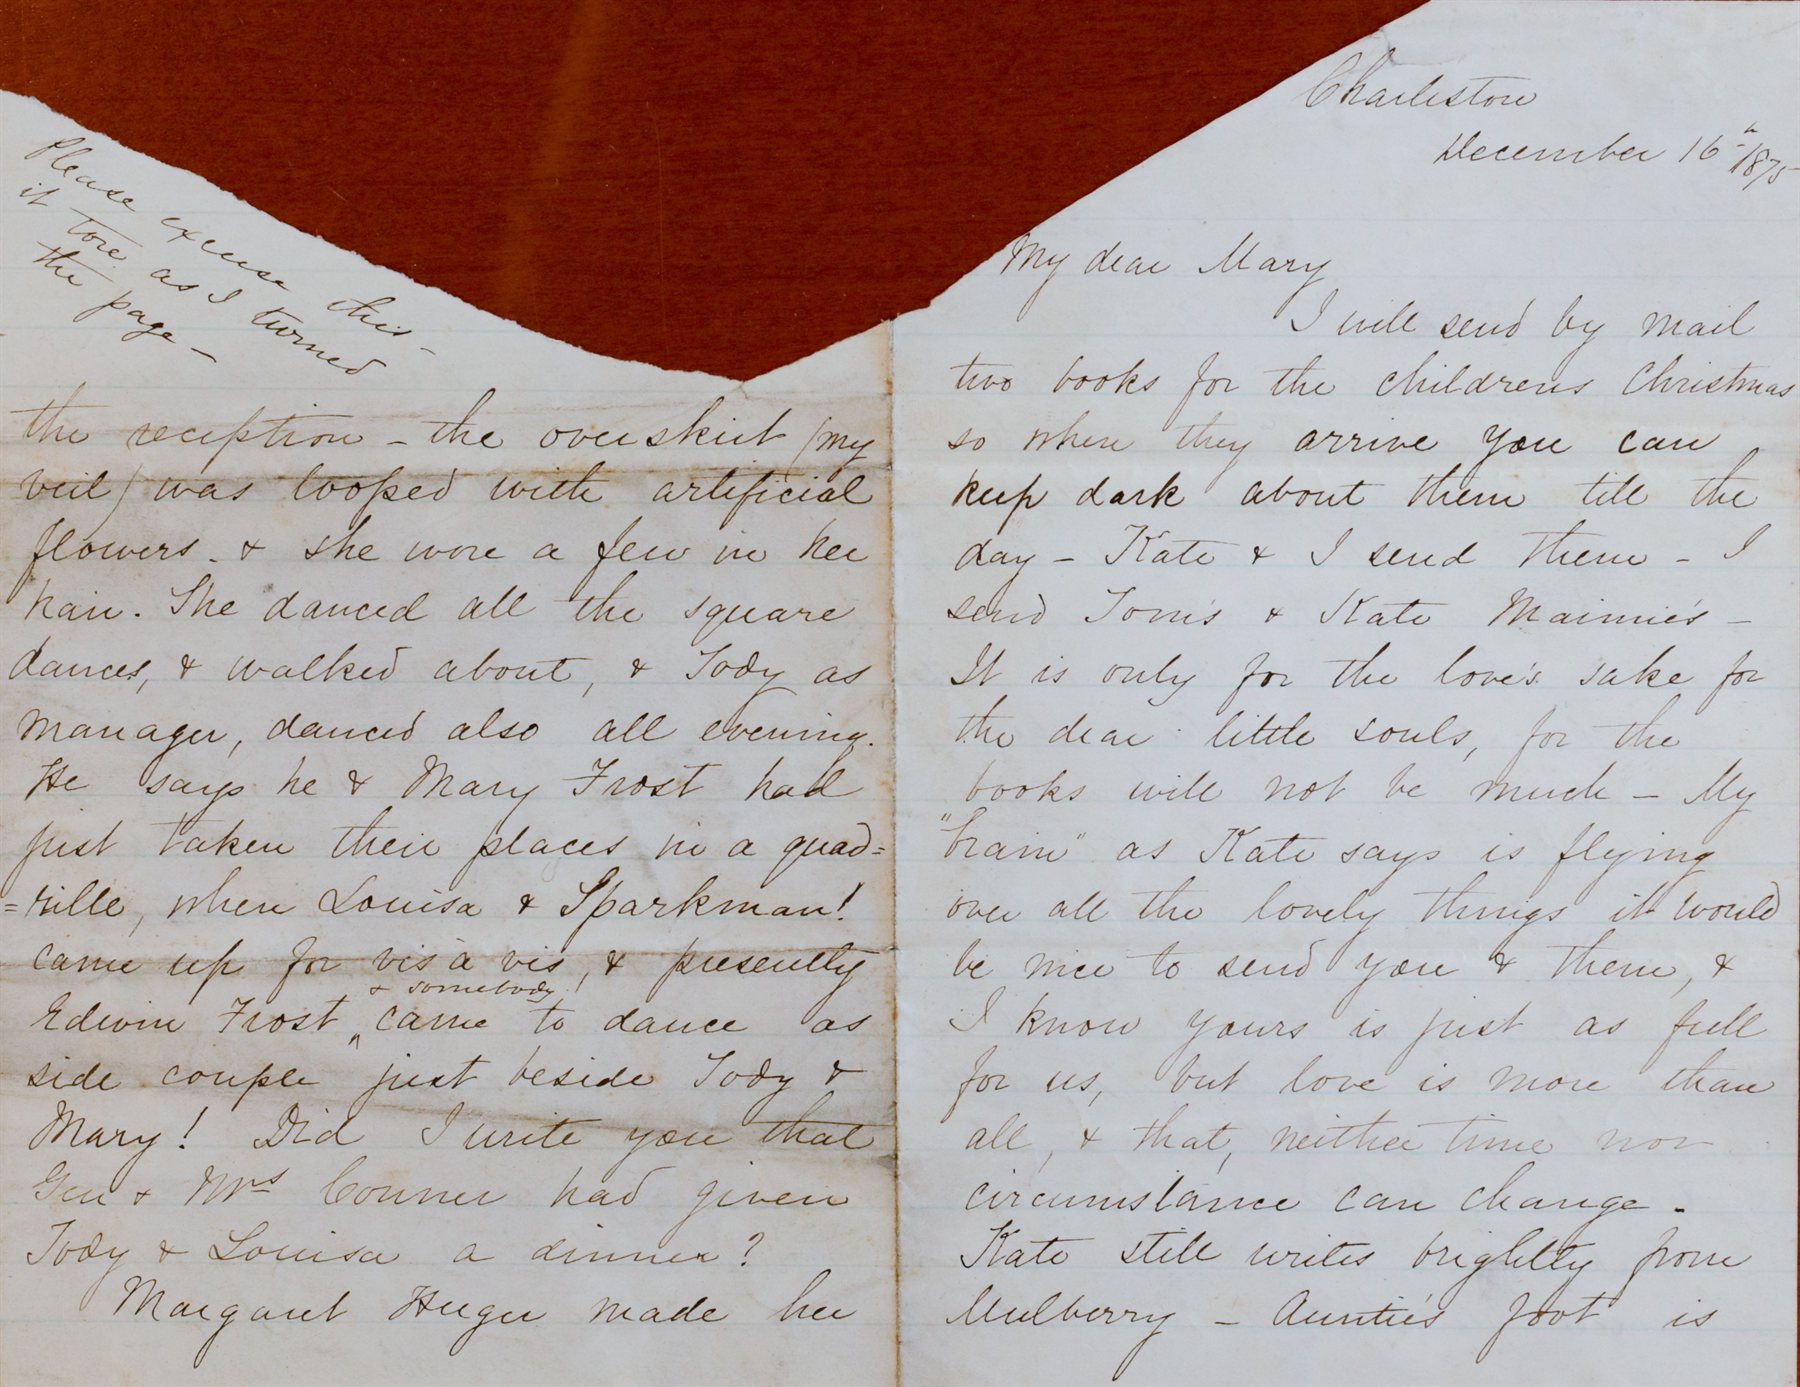 Charleston
December 16th 1875
My dear Mary
I will send by mail
two books for the childrens Christmas
so when they arrive you can
keep dark about them till the
day - Kate & I send them - I
send Tom's & Kate Mainie's -
It is only for the love's sake for
the dear little souls, for the
books will not be much - My
"brain" as Kate says is flying
over all the lovely things it would
be nice to send you & them, &
I know yours is just as full
for us, but love is more than
all, & that, neither time nor
circumstance can change -
Kate still writes brightly from
Mulberry - Auntie's foot is
Please excuse this -
it tore as I turned
the page -
the reception - the overskirt (my
veil) was looped with artificial
flowers - & she wore a few in her
hair. She danced all the square
dances, & walked about, & Tody as
manager, danced also all evening.
He says he & Mary Frost had
just taken their places in a quad=
=rille, when Louisa & Sparkman!
came up for vis à vis, & presently
Edwin Frost ^ & somebody! came to dance as
side couple just beside Tody &
Mary! Did I write you that
Gen & Mrs Conner had given
Tody & Louisa a dinner?
Margaret Huger made her